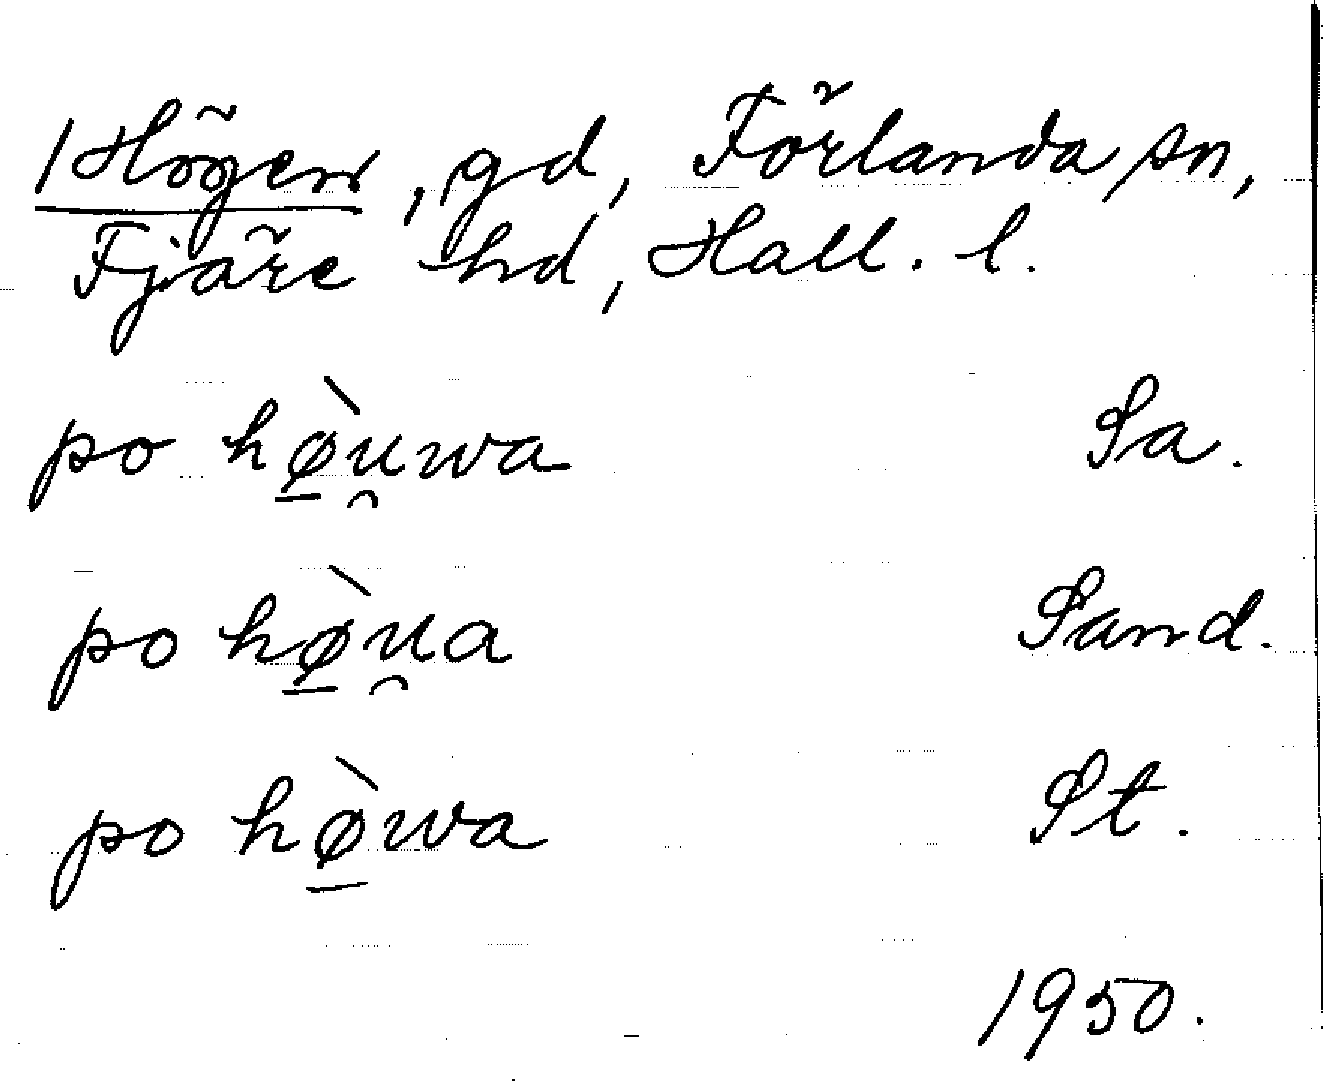 Högen, gd, Förlanda sn,
Fjäre hd, Hall. l.
po hø̱̀u̯wa Sa.
po hø̱̀u̯a Sand.
po hø̱̀wa St.
1950.